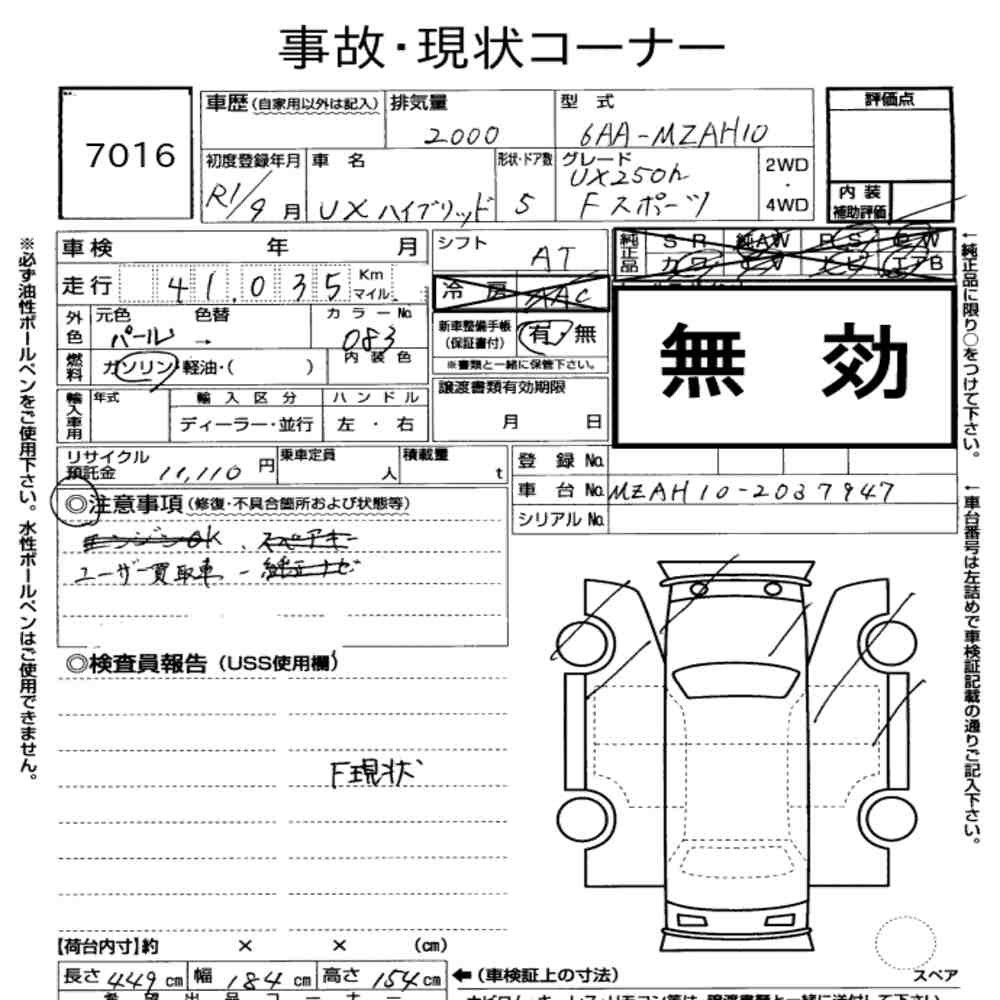 事故・現状コーナー
7016
車歴(自家用以外は記入)
排気量
2000
型 式
6AA-MZAH10
評価点
初度登録年月
R1/9月
車 名
UX ハイブリッド
形状・ドア数
5
グレード
UX250h
Fスポーツ
2WD
・
4WD
内 装
補助評価
車検 年 月
走行 41,035 Km
マイル
シフト
AT
純正品
SR 純AW PS PW
カワ TV ナビ エアB
冷 房 AAC
外色
元色 色替 カラーNo.
パール → 083
内 装 色
新車整備手帳
(保証書付)
有・無
※書類と一緒に保管下さい。
無 効
燃料
ガソリン・軽油・( )
譲渡書類有効期限
月 日
輸入車用
年式
輸 入 区 分
ハ ン ド ル
ディーラー・並行
左 ・ 右
リサイクル
預託金 11,110 円
乗車定員 人
積載量 t
登 録 No.
車 台 No. MZAH10-2037947
シリアル No.
◎注意事項(修復・不具合箇所および状態等)
エンジンOK 、スペアキー
ユーザー買取車 - 純正ナビ
◎検査員報告(USS使用欄)
F現状
【荷台内寸】約 × × (cm)
長さ 449 cm 幅 184 cm 高さ 154 cm
←(車検証上の寸法)
スペア
希 望 出 品 コ ー ナ ー
※必ず油性ボールペンをご使用下さい。水性ボールペンはご使用できません。
←純正品に限り○をつけて下さい。
←車台番号は左詰めで車検証記載の通りご記入下さい。